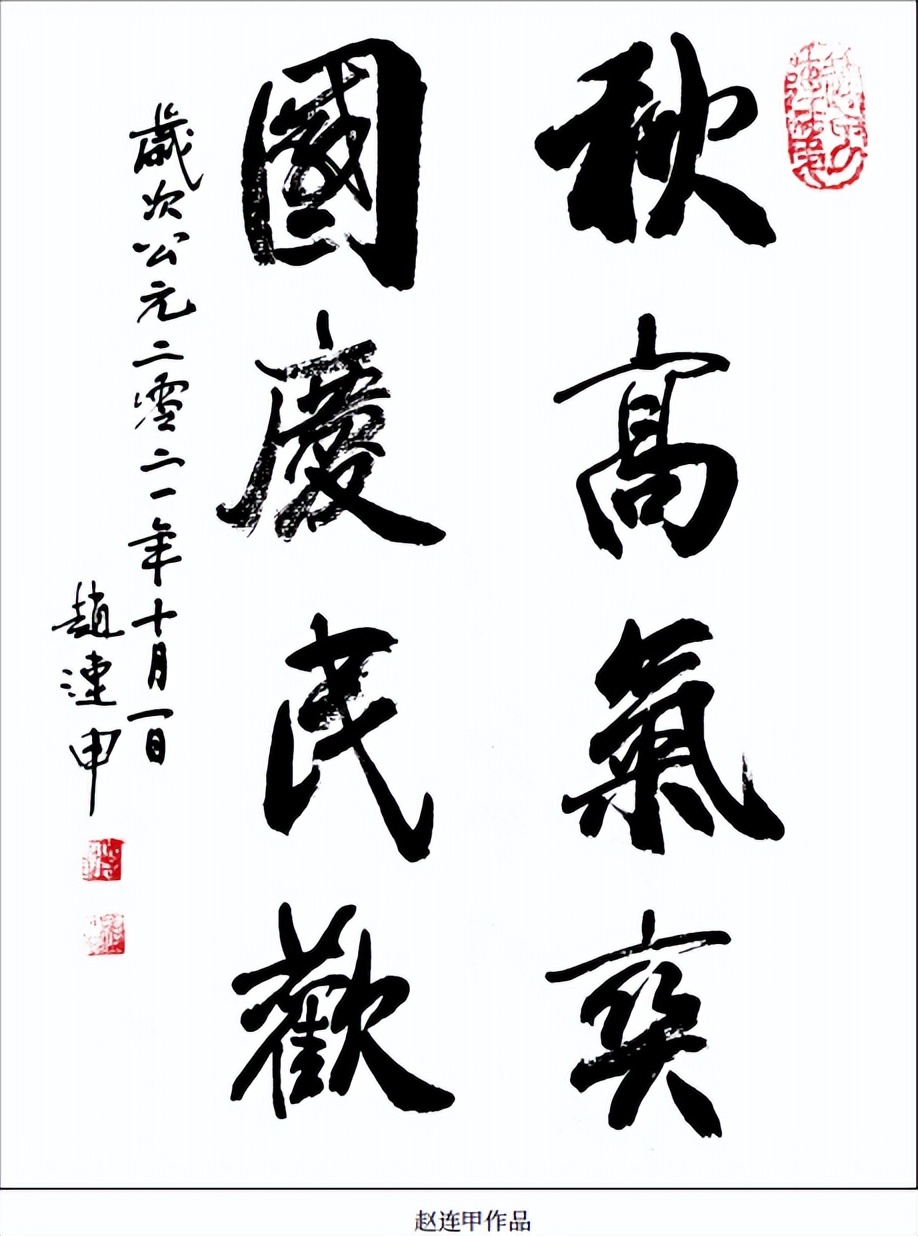 秋高氣爽
國慶民歡
歲次公元二零二一年十月一日
趙連甲
赵连甲作品